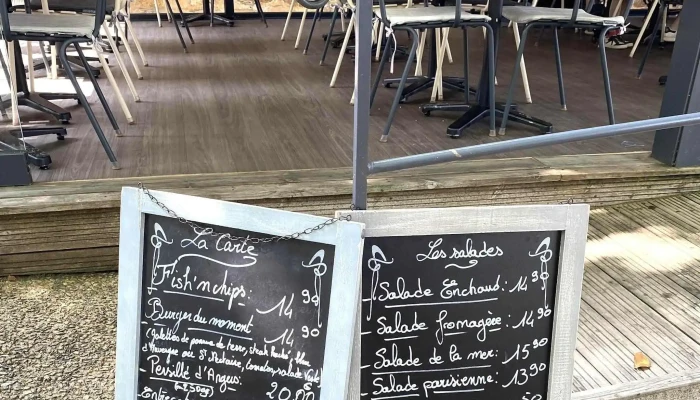 La Carte
Fish'n chips:
14 90
Burger du moment
14 90
(Galettes de pomme de terre, steak haché, bleu
d'Auvergne ou St Nectaire, salade
- Persillé d'Angus:
(≈250g) 20.00
Les salades
- Salade Enchaud: 14 90
- Salade fromagère: 14 90
- Salade de la mer: 15 90
- Salade parisienne: 13 90